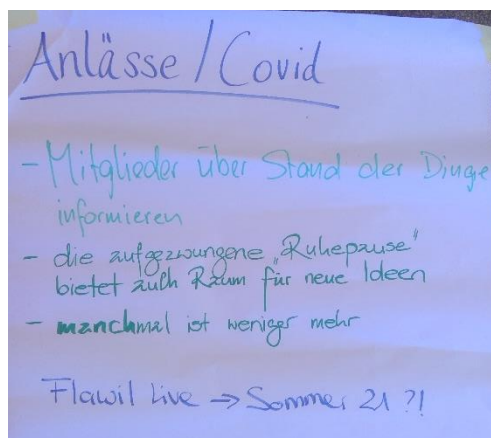 Anlässe / Covid
- Mitglieder über Stand der Dinge
informieren
- die aufgezwungene „Ruhepause"
bietet auch Raum für neue Ideen
- manchmal ist weniger mehr
Flawil Live → Sommer 21 ?!